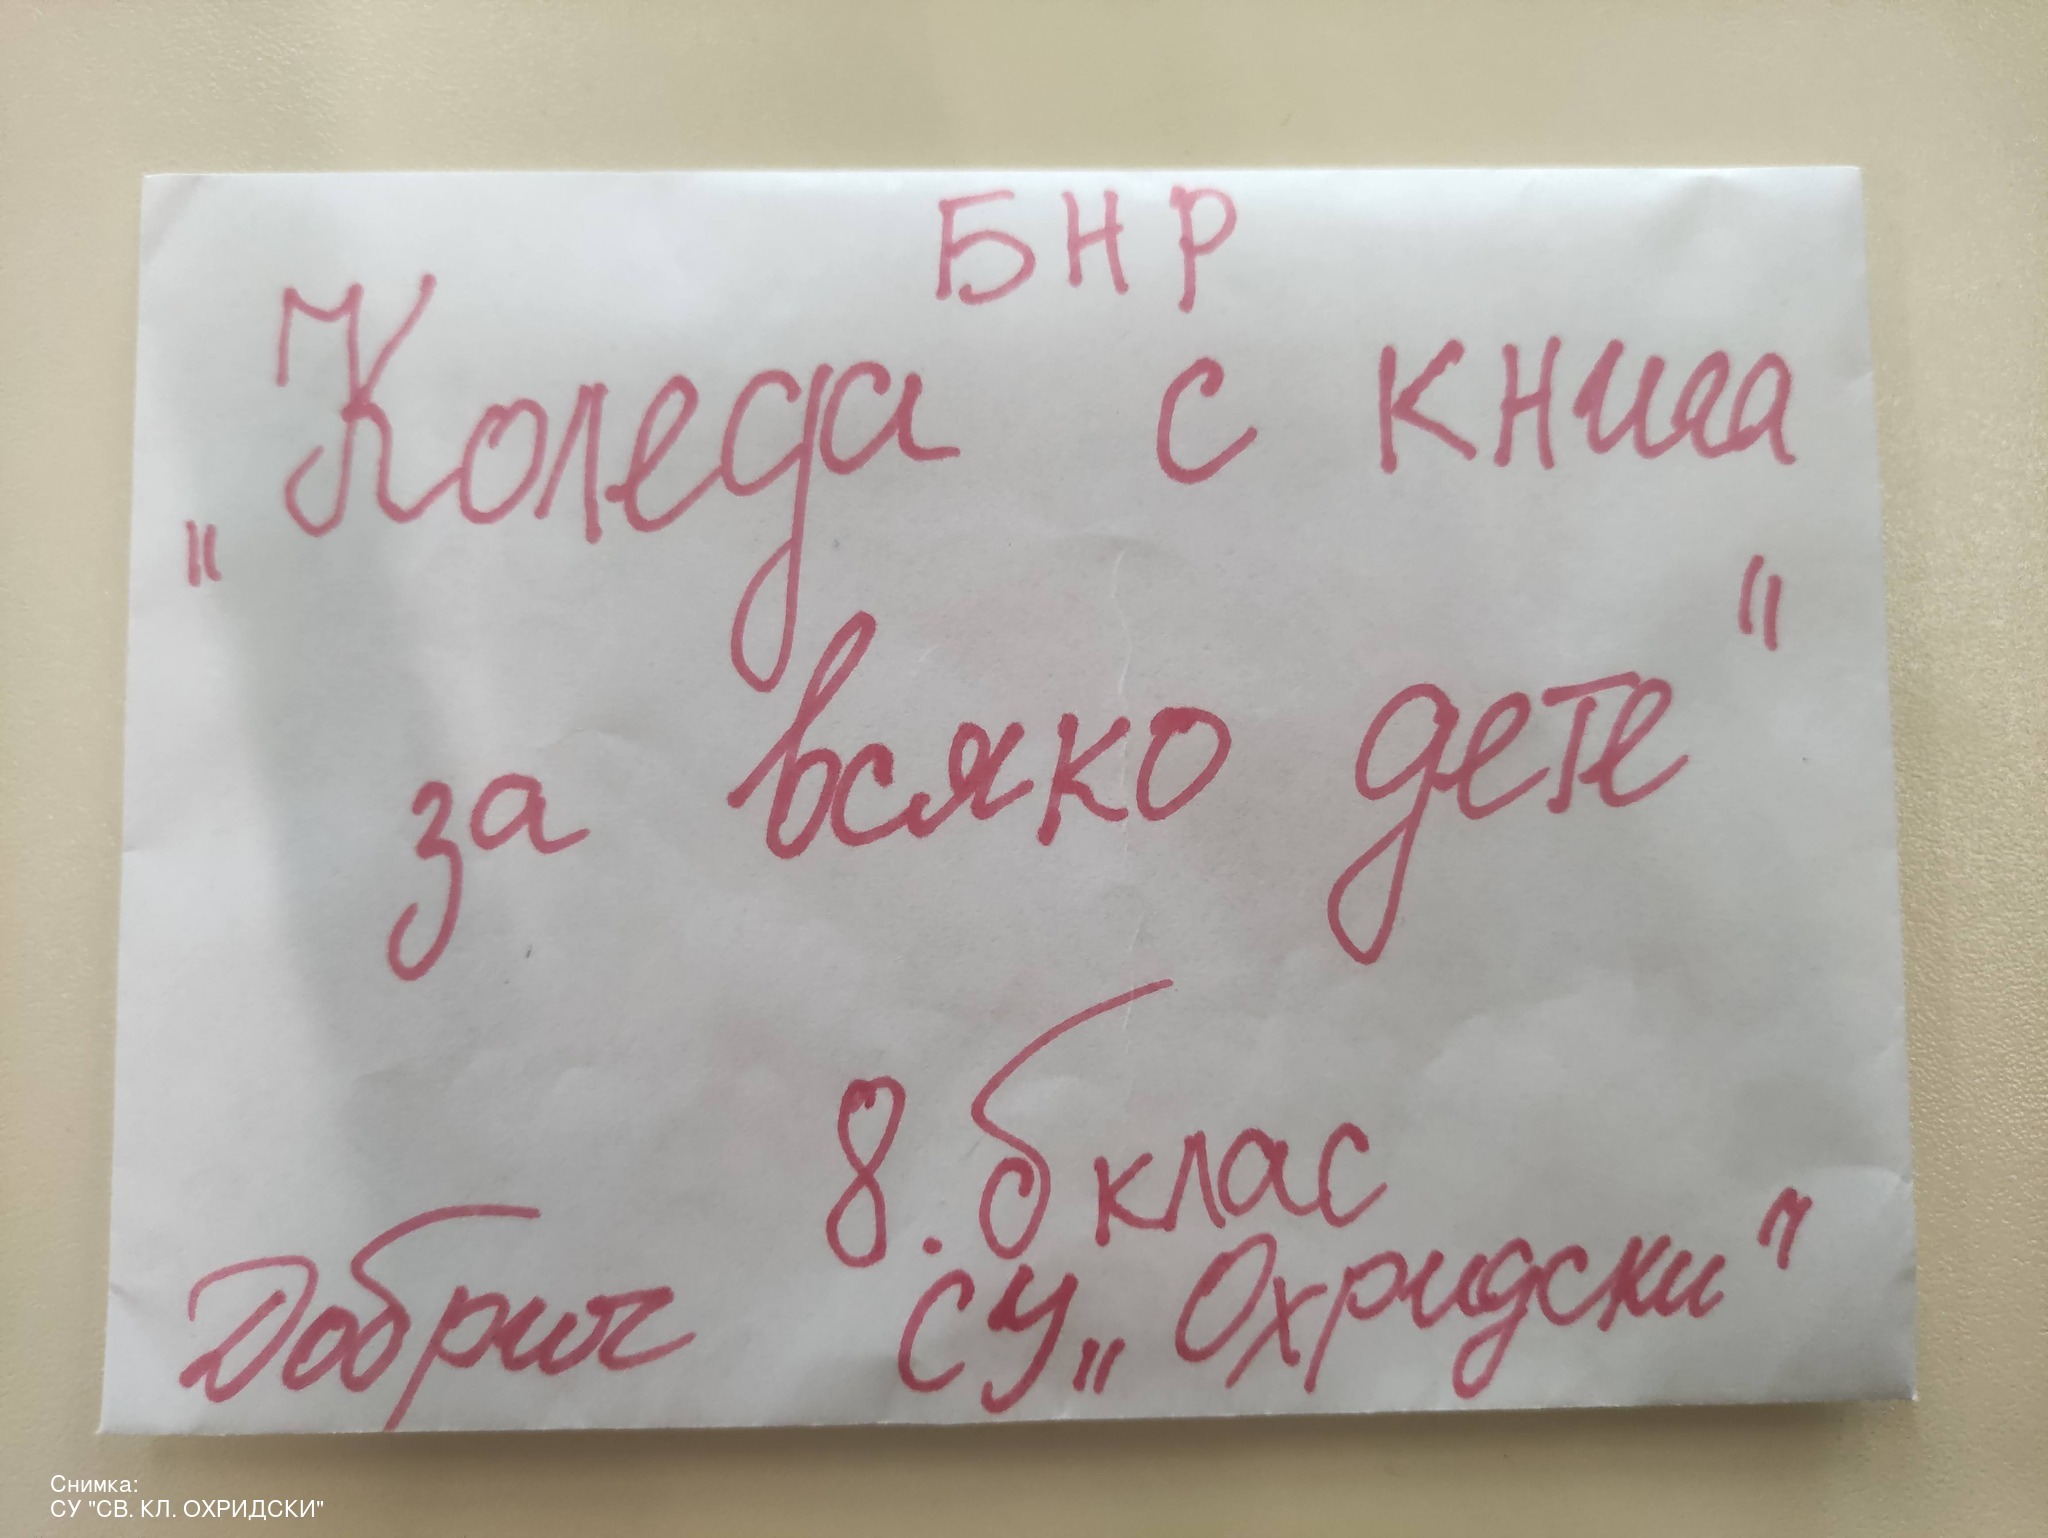 БНР
„Коледа с книга
за всяко дете"
8. б клас
Добрич СУ „Охридски"
Снимка:
СУ "СВ. КЛ. ОХРИДСКИ"